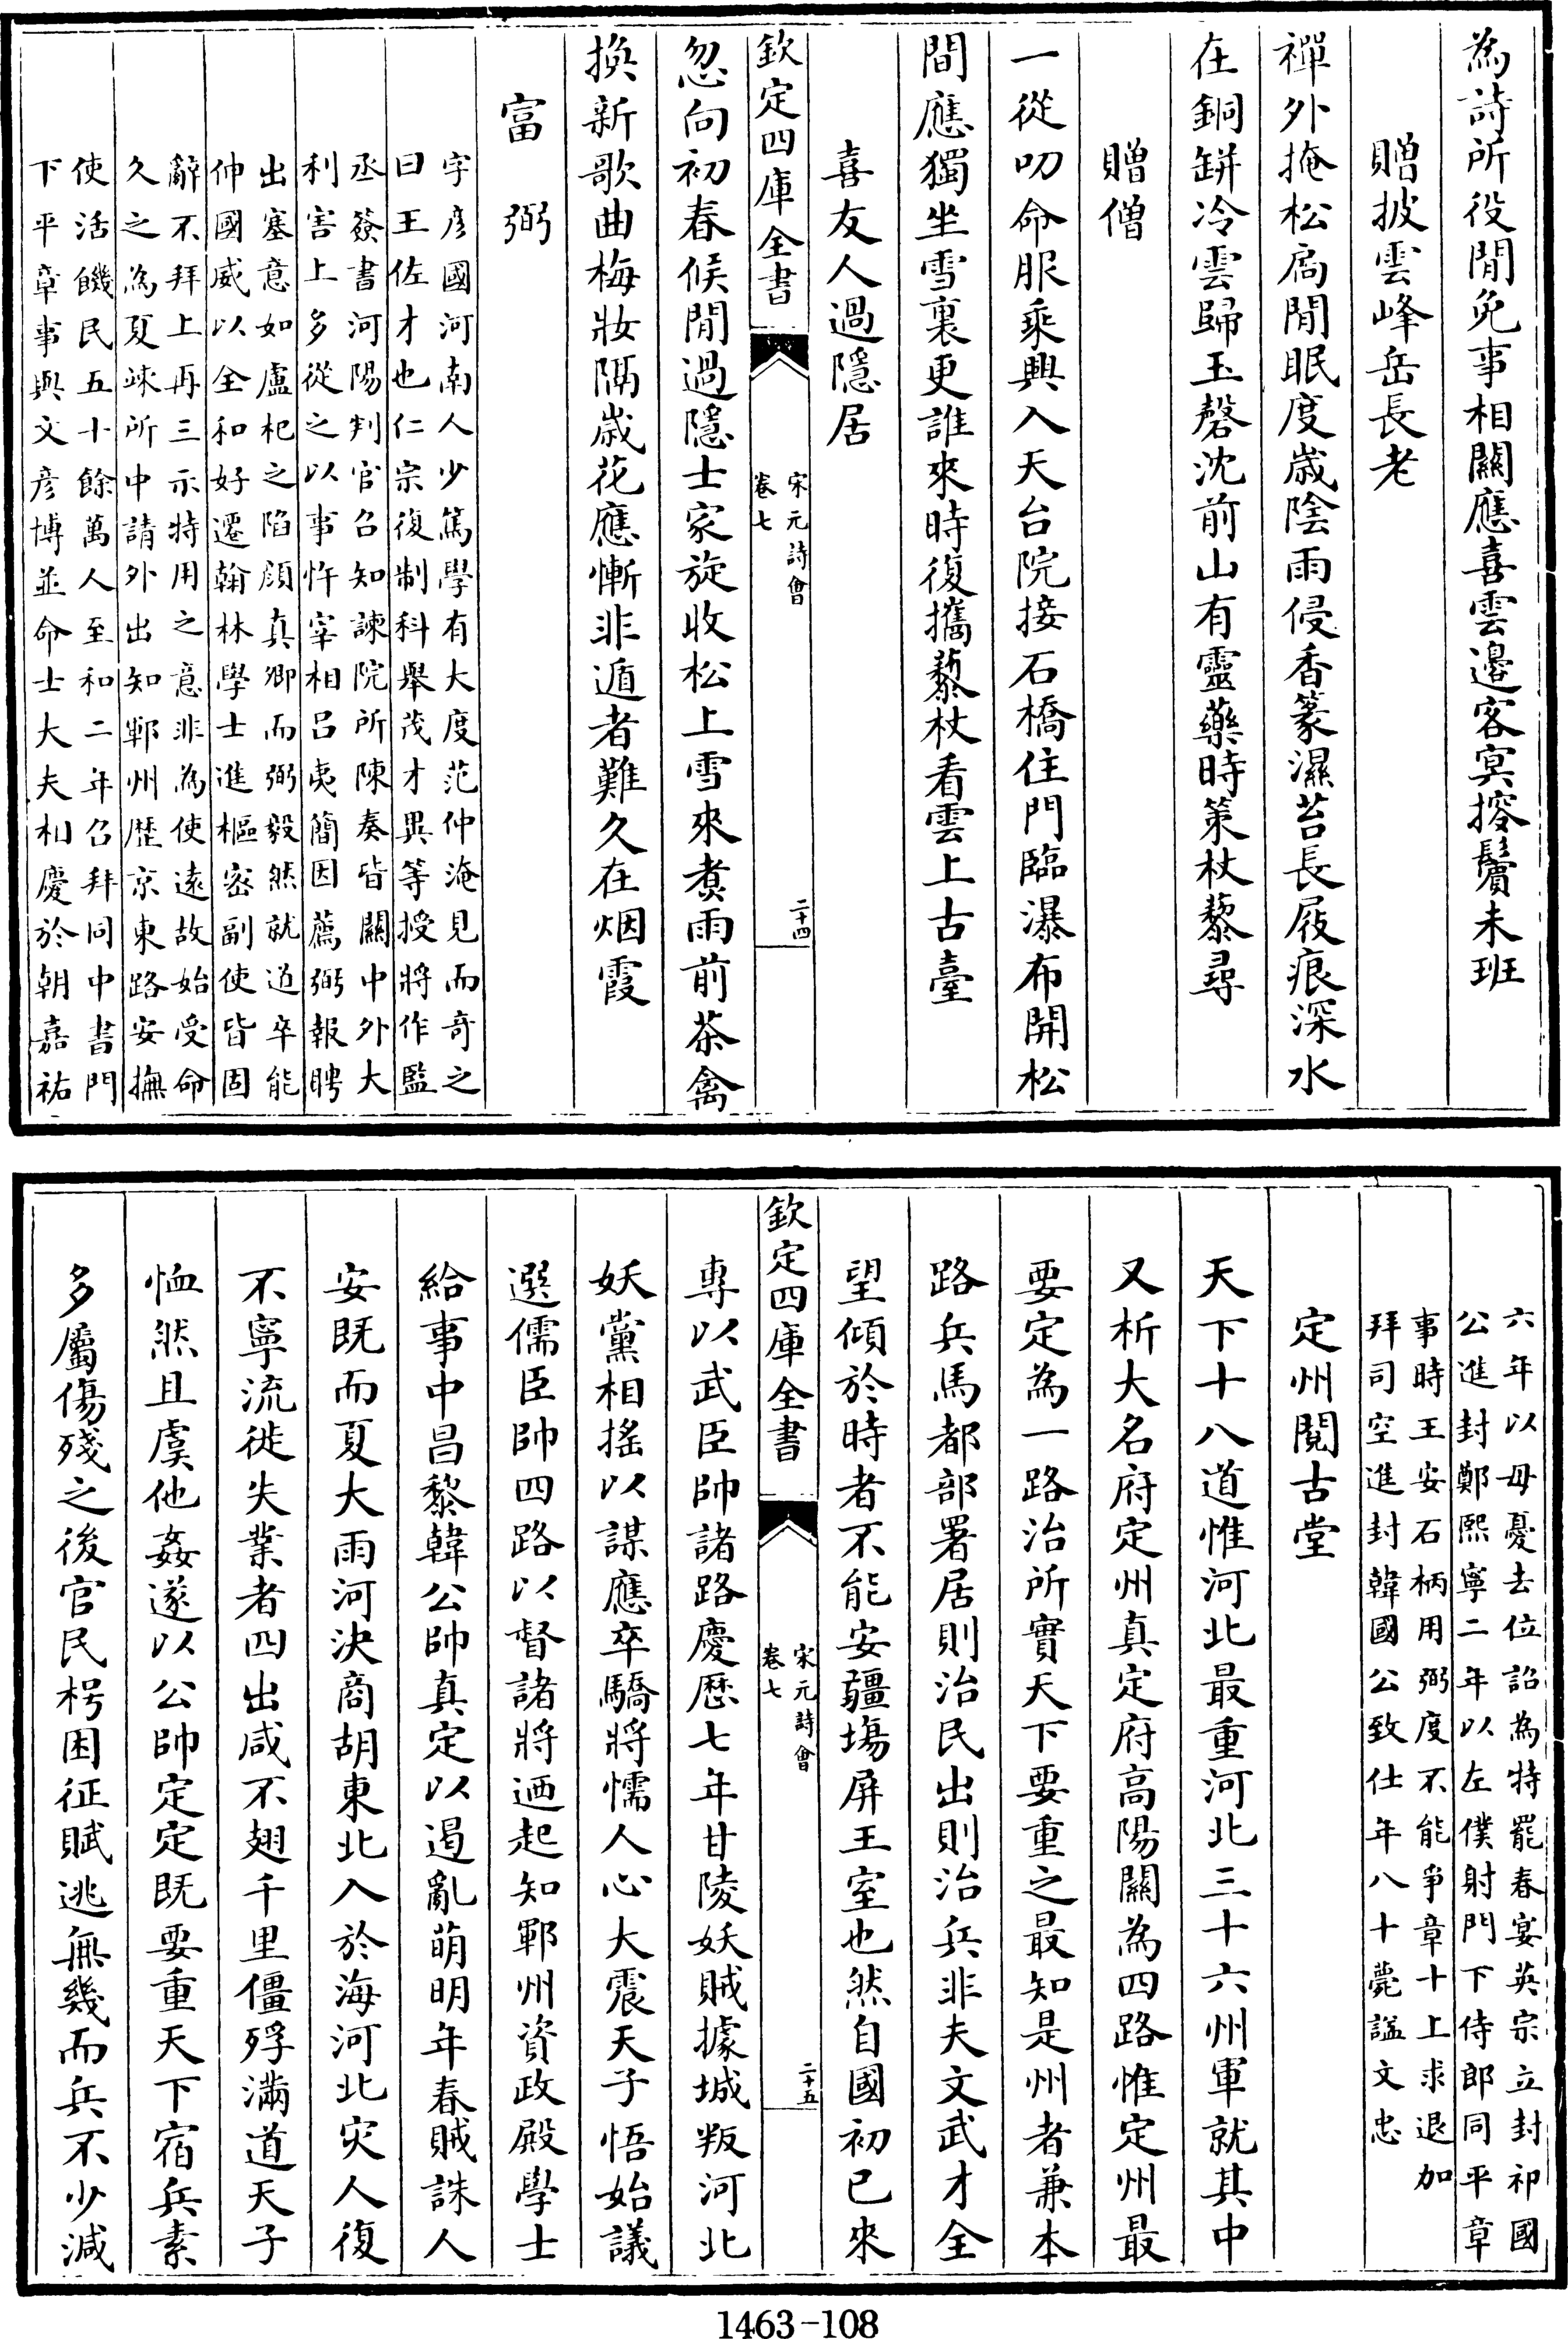 為詩所役閒免事相關應喜雲邊客㝠搜鬢未班
贈披雲峰岳長老
禪外掩松扃閒眠度歲陰雨侵香篆濕苔長屐痕深水
在銅缾冷雲歸玉磬沈前山有靈藥時策杖藜尋
贈僧
一從叨命服乘興入天台院接石橋住門臨瀑布開松
間應獨坐雪裏更誰來時復攜藜杖看雲上古臺
喜友人過隱居
欽定四庫全書
宋元詩會
卷七
二十四
忽向初春候閒過隱士家旋收松上雪來煑雨前茶禽
換新歌曲梅妝隔歲花應慚非遁者難久在烟霞
富弼
字彦國河南人少篤學有大度范仲淹見而奇之
曰王佐才也仁宗復制科舉茂才異等授將作監
丞簽書河陽判官召知諫院所陳奏皆闗中外大
利害上多從之以事忤宰相吕夷簡因薦弼報聘
出塞意如盧杞之陷顔真卿而弼毅然就道卒能
伸國威以全和好遷翰林學士進樞密副使皆固
辭不拜上再三示特用之意非為使遠故始受命
久之為夏竦所中請外出知鄆州歴京東路安撫
使活饑民五十餘萬人至和二年召拜同中書門
下平章事與文彦博並命士大夫相慶於朝嘉祐
六年以母憂去位詔為特罷春宴英宗立封祁國
公進封鄭熙寧二年以左僕射門下侍郎同平章
事時王安石柄用弼度不能爭章十上求退加
拜司空進封韓國公致仕年八十薨諡文忠
定州閱古堂
天下十八道惟河北最重河北三十六州軍就其中
又析大名府定州真定府高陽關為四路惟定州最
要定為一路治所實天下要重之最知是州者兼本
路兵馬都部署居則治民出則治兵非夫文武才全
望傾於時者不能安疆埸屏王室也然自國初已來
欽定四庫全書
宋元詩會
卷七
二十五
專以武臣帥諸路慶歴七年甘陵妖賊據城叛河北
妖黨相搖以謀應卒驕將懦人心大震天子悟始議
選儒臣帥四路以督諸將迺起知鄆州資政殿學士
給事中昌黎韓公帥真定以遏亂萌明年春賊誅人
安既而夏大雨河決商胡東北入於海河北災人復
不寧流徙失業者四出咸不翅千里僵殍滿道天子
恤然且虞他姦遂以公帥定定既要重天下宿兵素
多屬傷殘之後官民枵困征賦逃無幾而兵不少減
1463-108